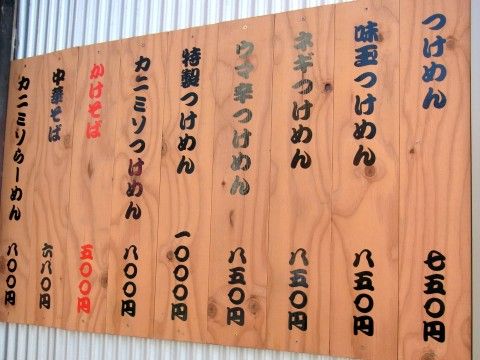 つけめん 七五〇円
味玉つけめん 八五〇円
ネギつけめん 八五〇円
ウマ辛つけめん 八五〇円
特製つけめん 一〇〇〇円
カニミソつけめん 八〇〇円
かけそば 五〇〇円
中華そば 六八〇円
カニミソらーめん 八〇〇円